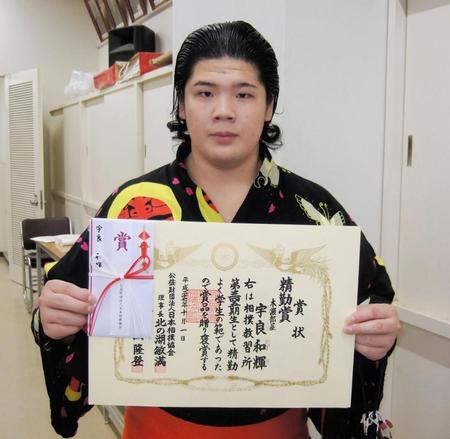 賞状
精勤賞
木瀬部屋
宇良和輝
右は相撲教習所
期生として精勤
よく学生の範であった
ので賞品を贈り褒賞する
平成 年十月一日
公益財団法人日本相撲協会
理事長 北の湖敏満
隆登
賞
宇良